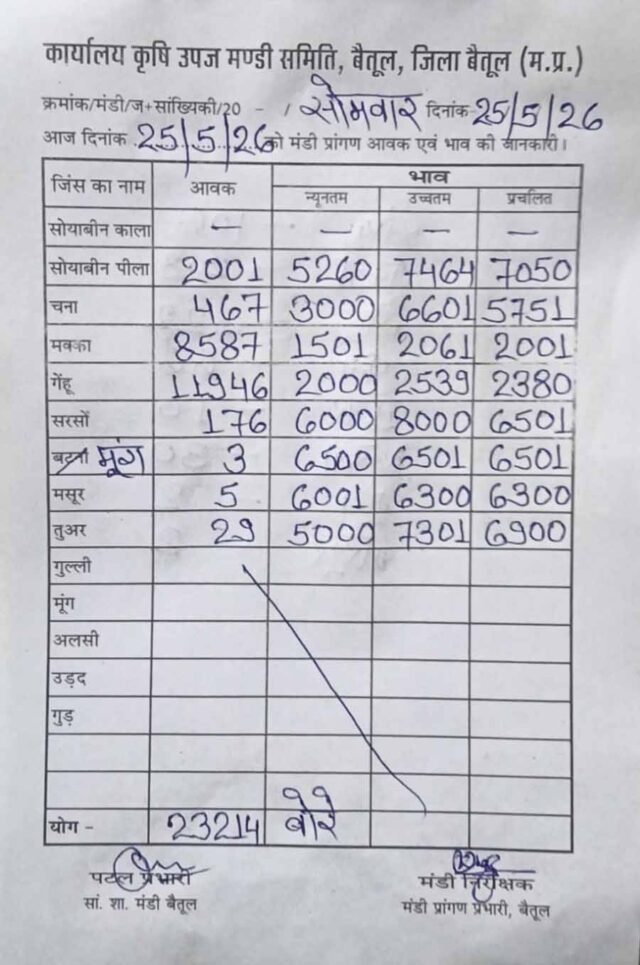 कार्यालय कृषि उपज मण्डी समिति, बैतूल, जिला बैतूल (म.प्र.)
क्रमांक/मंडी/ज+सांख्यिकी/20 - / सोमवार दिनांक 25/5/26
आज दिनांक 25/5/26 को मंडी प्रांगण आवक एवं भाव की जानकारी।
जिंस का नाम आवक भाव
न्यूनतम उच्चतम प्रचलित
सोयाबीन काला — — — —
सोयाबीन पीला 2001 5260 7464 7050
चना 467 3000 6601 5751
मक्का 8587 1501 2061 2001
गेंहू 11946 2000 2539 2380
सरसों 176 6000 8000 6501
बटना मूंग 3 6500 6501 6501
मसूर 5 6001 6300 6300
तुअर 29 5000 7301 6900
गुल्ली
मूंग
अलसी
उड़द
गुड़
योग - 23214 बोरे
पटल प्रभारी मंडी निरीक्षक
सां. शा. मंडी बैतूल मंडी प्रांगण प्रभारी, बैतूल